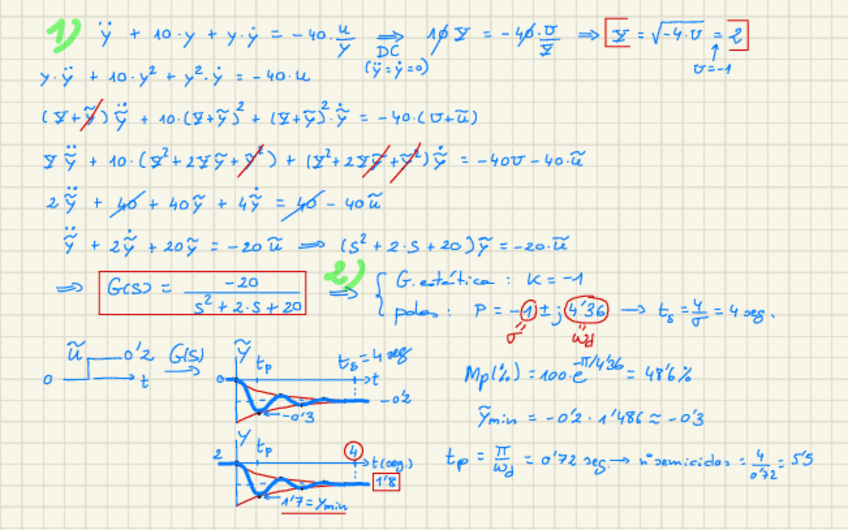 1) ÿ + 10·y + y·ẏ = -40·u/y ⟹ DC (ÿ=ẏ=0) 10Y = -40·U/Y ⟹ Y = √-4·U = 2
U=-1
y·ÿ + 10·y² + y²·ẏ = -40·u
(Y+ỹ)ỹ̈ + 10·(Y+ỹ)² + (Y+ỹ)²·ỹ̇ = -40·(U+ũ)
Yỹ̈ + 10·(Y²+2Yỹ+ỹ²) + (Y²+2Yỹ+ỹ²)ỹ̇ = -40U-40·ũ
2ỹ̈ + 40 + 40ỹ + 4ỹ̇ = 40 - 40ũ
ỹ̈ + 2ỹ̇ + 20ỹ = -20ũ ⟹ (s²+2·s+20)ỹ = -20·ũ
⟹ G(s) = -20/(s²+2·s+20) 2) ⟹ { G. estática : K = -1
polos : P = -1±j4'36 → ts = 4/σ = 4 seg.
σ" ωd"
ũ 0 0'2 t G(s) → ỹ tp ts = 4 seg
0 t -0'2 -0'3
Mp(%) = 100·e^(-π/4'36) = 48'6%
ỹmin = -0'2·1'486 ≈ -0'3
y tp 4
2 t(seg.) 1'8
1'7 = ymin
tp = π/ωd = 0'72 seg → nº semiciclos = 4/0'72 = 5'5